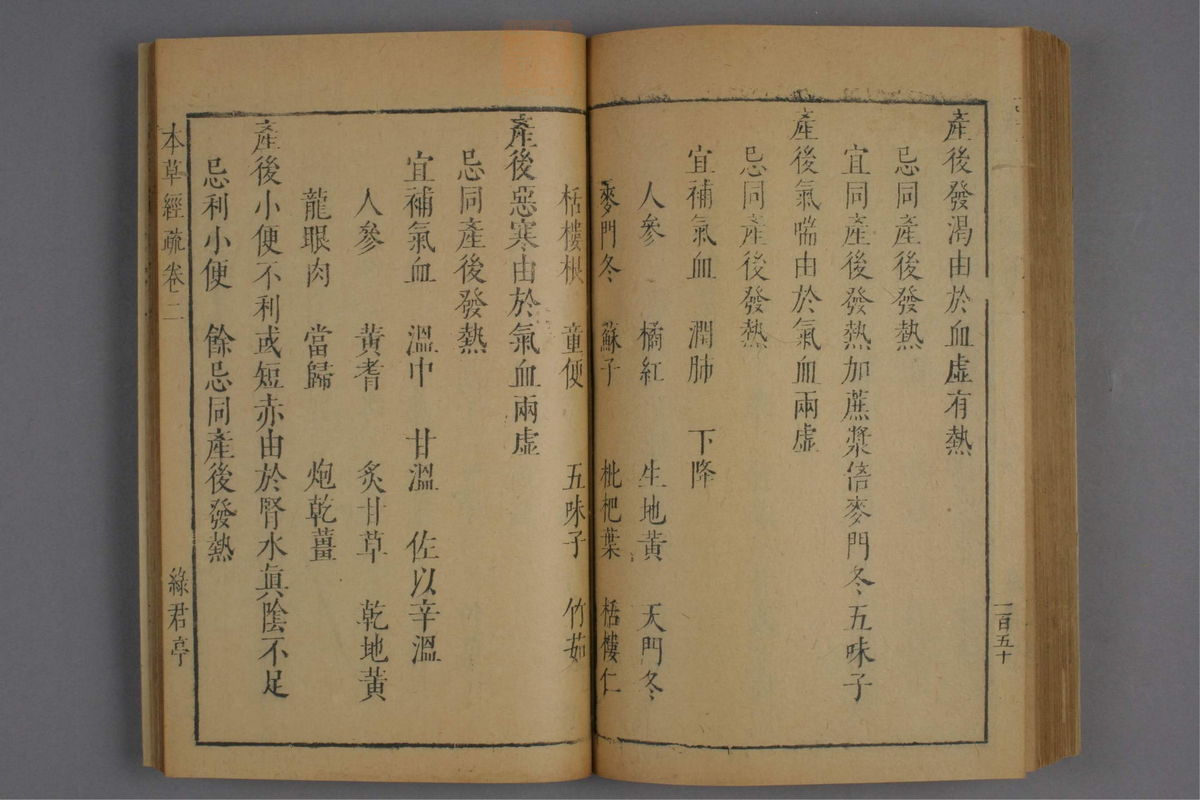 產後發渴由於血虛有熱
忌同產後發熱
宜同產後發熱加蔗漿倍麥門冬五味子
產後氣喘由於氣血兩虛
忌同產後發熱
宜補氣血 潤肺 下降
人參 橘紅 生地黃 天門冬
麥門冬 蘇子 枇杷葉 栝樓仁
栝樓根 童便 五味子 竹茹
產後惡寒由於氣血兩虛
忌同產後發熱
宜補氣血 溫中 甘溫 佐以辛溫
人參 黃耆 炙甘草 乾地黃
龍眼肉 當歸 炮乾薑
產後小便不利或短赤由於腎水眞陰不足
忌利小便 餘忌同產後發熱
本草經疏卷二 綠君亭
一百五十